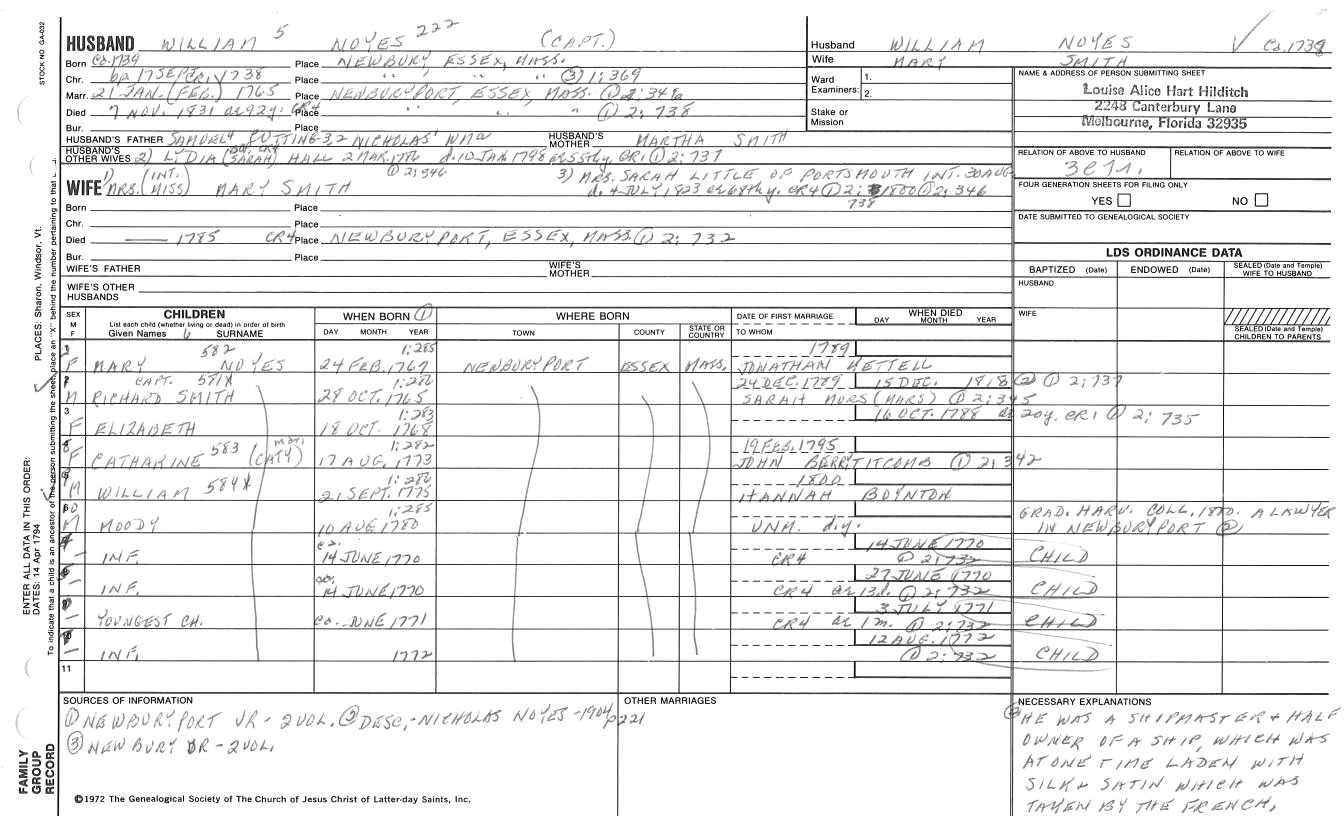 STOCK NO. GA-032
HUSBAND WILLIAM 5 NOYES 222 (CAPT.)
Born Ca. 1739 Place NEWBURY, ESSEX, MASS.
Chr. bp 17 SEPT. CR1 1738 Place " " " ③ 1:369
Marr. 21 JAN. (FEB.) 1765 Place NEWBURYPORT, ESSEX, MASS. ① 2:349
Died 7 NOV. 1831 ae 92y. CR4 Place " " ① 2:738
Bur. Place
HUSBAND'S FATHER SAMUEL4 CUTTING3,2 NICHOLAS1 WM HUSBAND'S MOTHER MARTHA SMITH
HUSBAND'S OTHER WIVES 2) LYDIA (SARAH) HALL 2 MAR. 1786 d. 10 JAN 1798 CR1 ① 2:737
① 2:346
Husband WILLIAM NOYES ✓ Ca. 1738
Wife MARY SMITH
Ward Examiners: 1.
2.
Stake or Mission
NAME & ADDRESS OF PERSON SUBMITTING SHEET
Louise Alice Hart Hilditch
2248 Canterbury Lane
Melbourne, Florida 32935
RELATION OF ABOVE TO HUSBAND RELATION OF ABOVE TO WIFE
FOUR GENERATION SHEETS FOR FILING ONLY
YES NO
DATE SUBMITTED TO GENEALOGICAL SOCIETY
WIFE 1) MRS. (INT. MISS) MARY SMITH
3) MRS. SARAH LITTLE OF PORTSMOUTH INT. 30 AUG.
d. 4 JULY 1823 ae 68th y. CR4 ① 2: 738 1800 ① 2:346
Born Place
Chr. Place
Died —— 1785 CR4 Place NEWBURYPORT, ESSEX, MASS. ① 2:732
Bur. Place
WIFE'S FATHER WIFE'S MOTHER
WIFE'S OTHER HUSBANDS
LDS ORDINANCE DATA
BAPTIZED (Date) ENDOWED (Date) SEALED (Date and Temple) WIFE TO HUSBAND
HUSBAND
WIFE
SEALED (Date and Temple) CHILDREN TO PARENTS
SEX M F CHILDREN
List each child (whether living or dead) in order of birth
Given Names 6 SURNAME
WHEN BORN ①
DAY MONTH YEAR
WHERE BORN
TOWN COUNTY STATE OR COUNTRY
DATE OF FIRST MARRIAGE
TO WHOM
WHEN DIED
DAY MONTH YEAR
582 1:285 1789
F MARY NOYES 24 FEB. 1767 NEWBURYPORT ESSEX MASS. JONATHAN KETTELL
CAPT. 581X 1:286 24 DEC. 1789 15 DEC. 1818 ② ① 2:737
M RICHARD SMITH 28 OCT. 1765 SARAH MORS (MARS) ① 2:345
3 1:283 16 OCT. 1788 ae 20y. CR1 ① 2:735
F ELIZABETH 18 OCT. 1768
1:282 19 FEB. 1795
F CATHARINE 583 (CATY) 17 AUG. 1773 JOHN BERRY TITCOMB ① 2:342
1:286 1800
M WILLIAM 584X 21 SEPT. 1775 HANNAH BOYNTON
1:285
M MOODY 10 AUG 1780 UNM. d.y. GRAD. HARV. COLL. 1800. A LAWYER IN NEWBURYPORT ②
ca. 14 JUNE 1770
– INF. 14 JUNE 1770 CR4 ① 2:732 CHILD
27 JUNE 1770
– INF. 14 JUNE 1770 CR4 ae 13d. ① 2:732 CHILD
3 JULY 1771
– YOUNGEST CH. ca. JUNE 1771 CR4 ae 1 m. ① 2:732 CHILD
12 AUG. 1772
– INF. 1772 ① 2:732 CHILD
11
SOURCES OF INFORMATION
① NEWBURYPORT VR - 2 VOL. ② DESC. - NICHOLAS NOYES - 1904 p221
③ NEWBURY VR - 2 VOL.
OTHER MARRIAGES
NECESSARY EXPLANATIONS
② HE WAS A SHIPMASTER + HALF
OWNER OF A SHIP, WHICH WAS
AT ONE TIME LADEN WITH
SILK & SATIN WHICH WAS
TAKEN BY THE FRENCH.
©1972 The Genealogical Society of The Church of Jesus Christ of Latter-day Saints, Inc.
FAMILY GROUP RECORD
ENTER ALL DATA IN THIS ORDER:
DATES: 14 Apr 1794
PLACES: Sharon, Windsor, Vt.
To indicate that a child is an ancestor of the person submitting the sheet, place an "X" behind the number pertaining to that